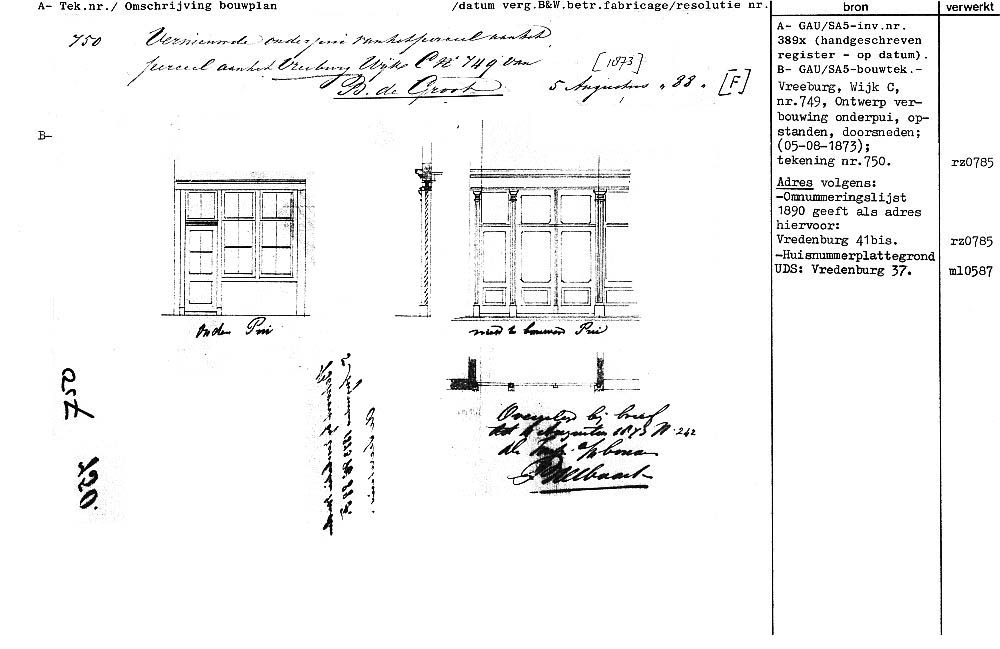 A- Tek.nr./ Omschrijving bouwplan /datum verg.B&W.betr.fabricage/resolutie nr.
bron
verwerkt
750 Vernieuwde onderpui van het perceel aan het
perceel aan het Vreeburg Wijk C No 749 van
B. de Groot
[1873]
5 Augustus " 88 " [F]
B-
ouden Pui
nieuw te bouwen Pui
750
750.
bij brief
Augustus 1873 N. 242
A- GAU/SA5-inv.nr.
389x (handgeschreven
register - op datum).
B- GAU/SA5-bouwtek.-
Vreeburg, Wijk C,
nr.749, Ontwerp ver-
bouwing onderpui, op-
standen, doorsneden;
(05-08-1873);
tekening nr.750.
rz0785
Adres volgens:
-Omnummeringslijst
1890 geeft als adres
hiervoor:
Vredenburg 41bis.
rz0785
-Huisnummerplattegrond
UDS: Vredenburg 37.
ml0587